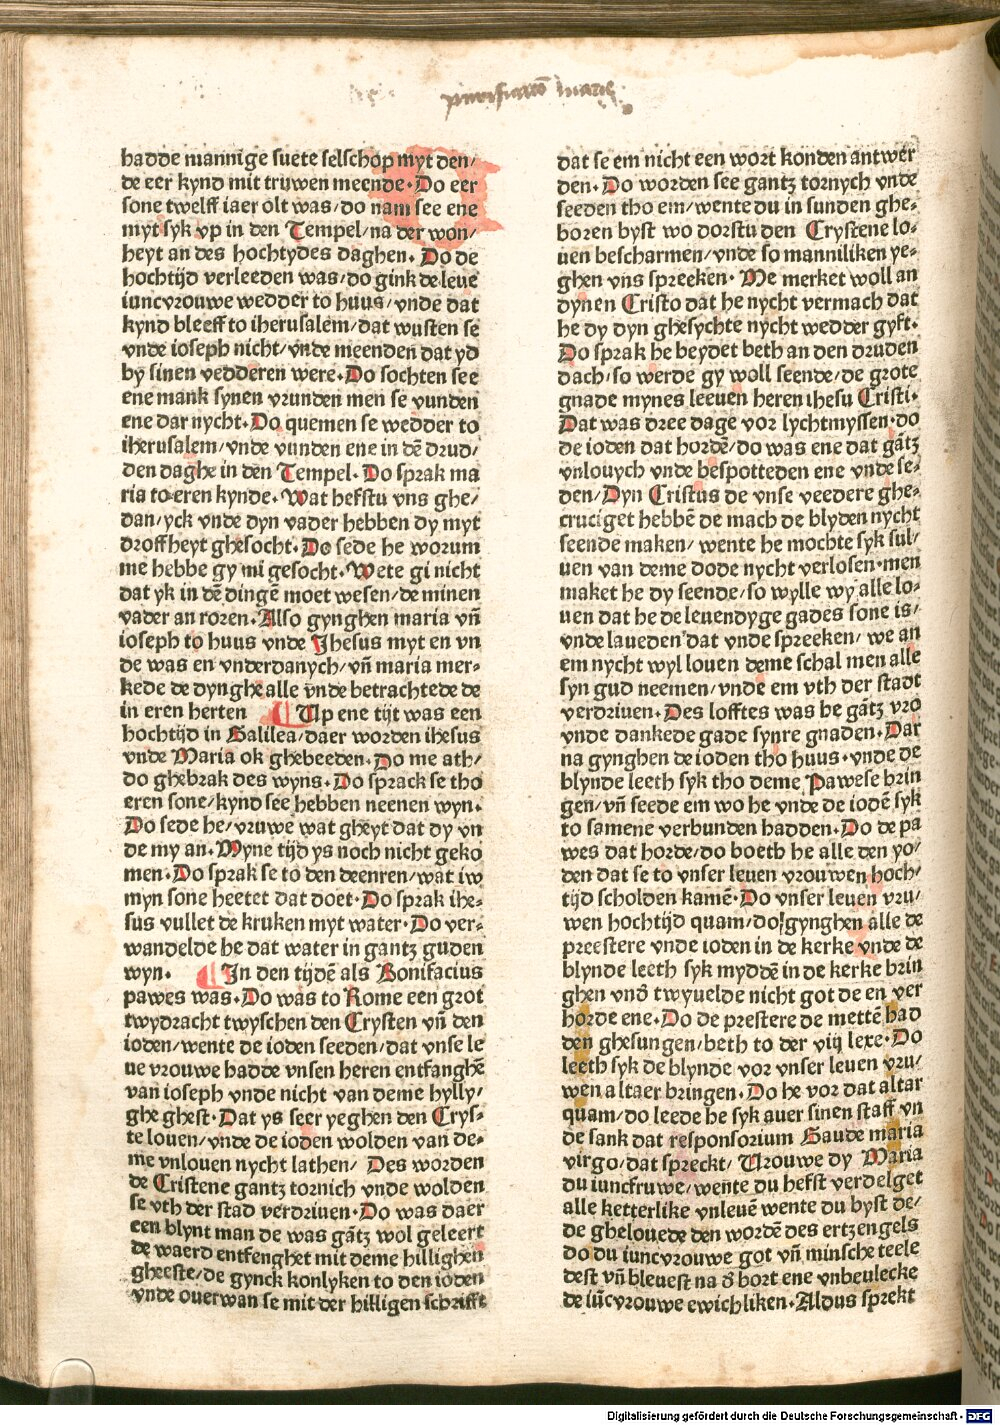 purificatio marie
hadde mannige suete selschop myt den/
de eer kynd mit truwen meende. Do eer
sone twelff iaer olt was/do nam see ene
myt syk vp in den Tempel/na der won/
heyt an des hochtydes daghen. Do de
hochtijd verleeden was/do gink de leue
iuncvrouwe wedder to huus/vnde dat
kynd bleeff to iherusalem/dat wusten se
vnde ioseph nicht/vnde meenden dat yd
by sinen vedderen were. Do sochten see
ene mank synen vrunden men se vunden
ene dar nycht. Do quemen se wedder to
iherusalem/vnde vunden ene in dē drud/
den daghe in den Tempel. Do sprak ma
ria to eren kynde. Wat hefstu vns ghe/
dan/yck vnde dyn vader hebben dy myt
droffheyt ghesocht. Do sede he worum
me hebbe gy mi gesocht. Wete gi nicht
dat yk in dē dingē moet wesen/de minen
vader an roren. Also gynghen maria vñ
ioseph to huus vnde Jhesus myt en vn
de was en vnderdanych/vñ maria mer-
kede de dynghe alle vnde betrachtede de
in eren herten ¶ Up ene tijt was een
hochtijd in Galilea/daer worden ihesus
vnde Maria ok ghebeeden. Do me ath/
do ghebrak des wyns. Do sprack se tho
eren sone/kynd see hebben neenen wyn.
Do sede he/vruwe wat gheyt dat dy vn
de my an. Myne tijd ys noch nicht geko
men. Do sprak se to den deenren/wat iw
myn sone heetet dat doet. Do sprak ihe-
sus vullet de kruken myt water. Do ver-
wandelde he dat water in gantz guden
wyn. ¶ In den tijdē als Bonifacius
pawes was. Do was to Rome een grot
twydracht twyschen den Crysten vñ den
ioden/wente de ioden seeden/dat vnse le
ue vrouwe hadde vnsen heren entfanghē
van ioseph vnde nicht van deme hylly/
ghe ghest. Dat ys seer yeghen den Crys-
te louen/vnde de ioden wolden van de-
me vnlouen nycht lathen/ Des worden
de Cristene gantz tornich vnde wolden
se vth der stad verdriuen. Do was daer
een blynt man de was gātz wol geleert
de waerd entfenghet mit deme hillighen
gheeste/de gynck konlyken to den ioden
vnde ouerwan se mit der hilligen schrifft
dat se em nicht een wort konden antwer
den. Do worden see gantz tornych vnde
seeden tho em/wente du in sunden ghe-
boren byst wo dorstu den Crystene lo-
uen bescharmen/vnde so manniliken ye-
ghen vns spreeken. We merket woll an
dynen Cristo dat he nycht vermach dat
he dy dyn ghesychte nycht wedder gyft.
Do sprak he beydet beth an den druden
dach/so werde gy woll seende/de grote
gnade mynes leeuen heren ihesu Cristi.
Dat was dree dage vor lychtmyssen. do
de ioden dat hordē/do was ene dat gātz
vnlouych vnde bespotteden ene vnde se-
den/Dyn Cristus de vnse veedere ghe-
cruciget hebbē de mach de blyden nycht
seende maken/wente he mochte syk sul/
uen van deme dode nycht verlosen. men
maket he dy seende/so wylle wy alle lo-
uen dat he de leuendyge gades sone is/
vnde laueden dat vnde spreeken/we an
em nycht wyl louen deme schal men alle
syn gud neemen/vnde em vth der stadt
verdriuen. Des lofftes was he gātz vro
vnde dankede gade synre gnaden. Dar
na gynghen de ioden tho huus. vnde de
blynde leeth syk tho deme Pawese brin
gen/vñ seede em wo he vnde de iodē syk
to samene verbunden hadden. Do de pa
wes dat horde/do boeth he alle den yo/
den dat se to vnser leuen vrouwen hoch/
tijd scholden kamē. Do vnser leuen vru/
wen hochtijd quam/do gynghen alle de
preestere vnde ioden in de kerke vnde de
blynde leeth syk myddē in de kerke brin
ghen vnđ twyuelde nicht got de en ver
horde ene. Do de prestere de mettē had
den ghesungen/beth to der viij lexe. Do
leeth syk de blynde vor vnser leuen vru/
wen altaer bringen. Do he vor dat altar
quam/do leede he syk auer sinen staff vn
de sank dat responsorium Gaude maria
virgo/dat spreckt/Vrouwe dy Maria
du iuncfruwe/wente du hefst verdelget
alle ketterlike vnleuē wente du byst de/
de ghelouede den wordē des ertzengels
do du iuncvrouwe got vñ minsche teele
dest vñ bleuest na đ bort ene vnbeulecke
de iūcvrouwe ewichliken. Aldus sprekt
Digitalisierung gefördert durch die Deutsche Forschungsgemeinschaft - DFG